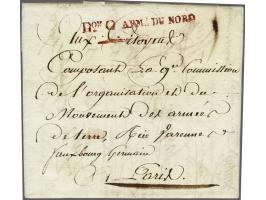 Don 9 ARM. DU NORD
Aux Citoyens
Composant La 9e Commission
de l'organisation et du
Mouvement des armées
de terre, Rue Varennes
fauxbourg Germain
Paris.